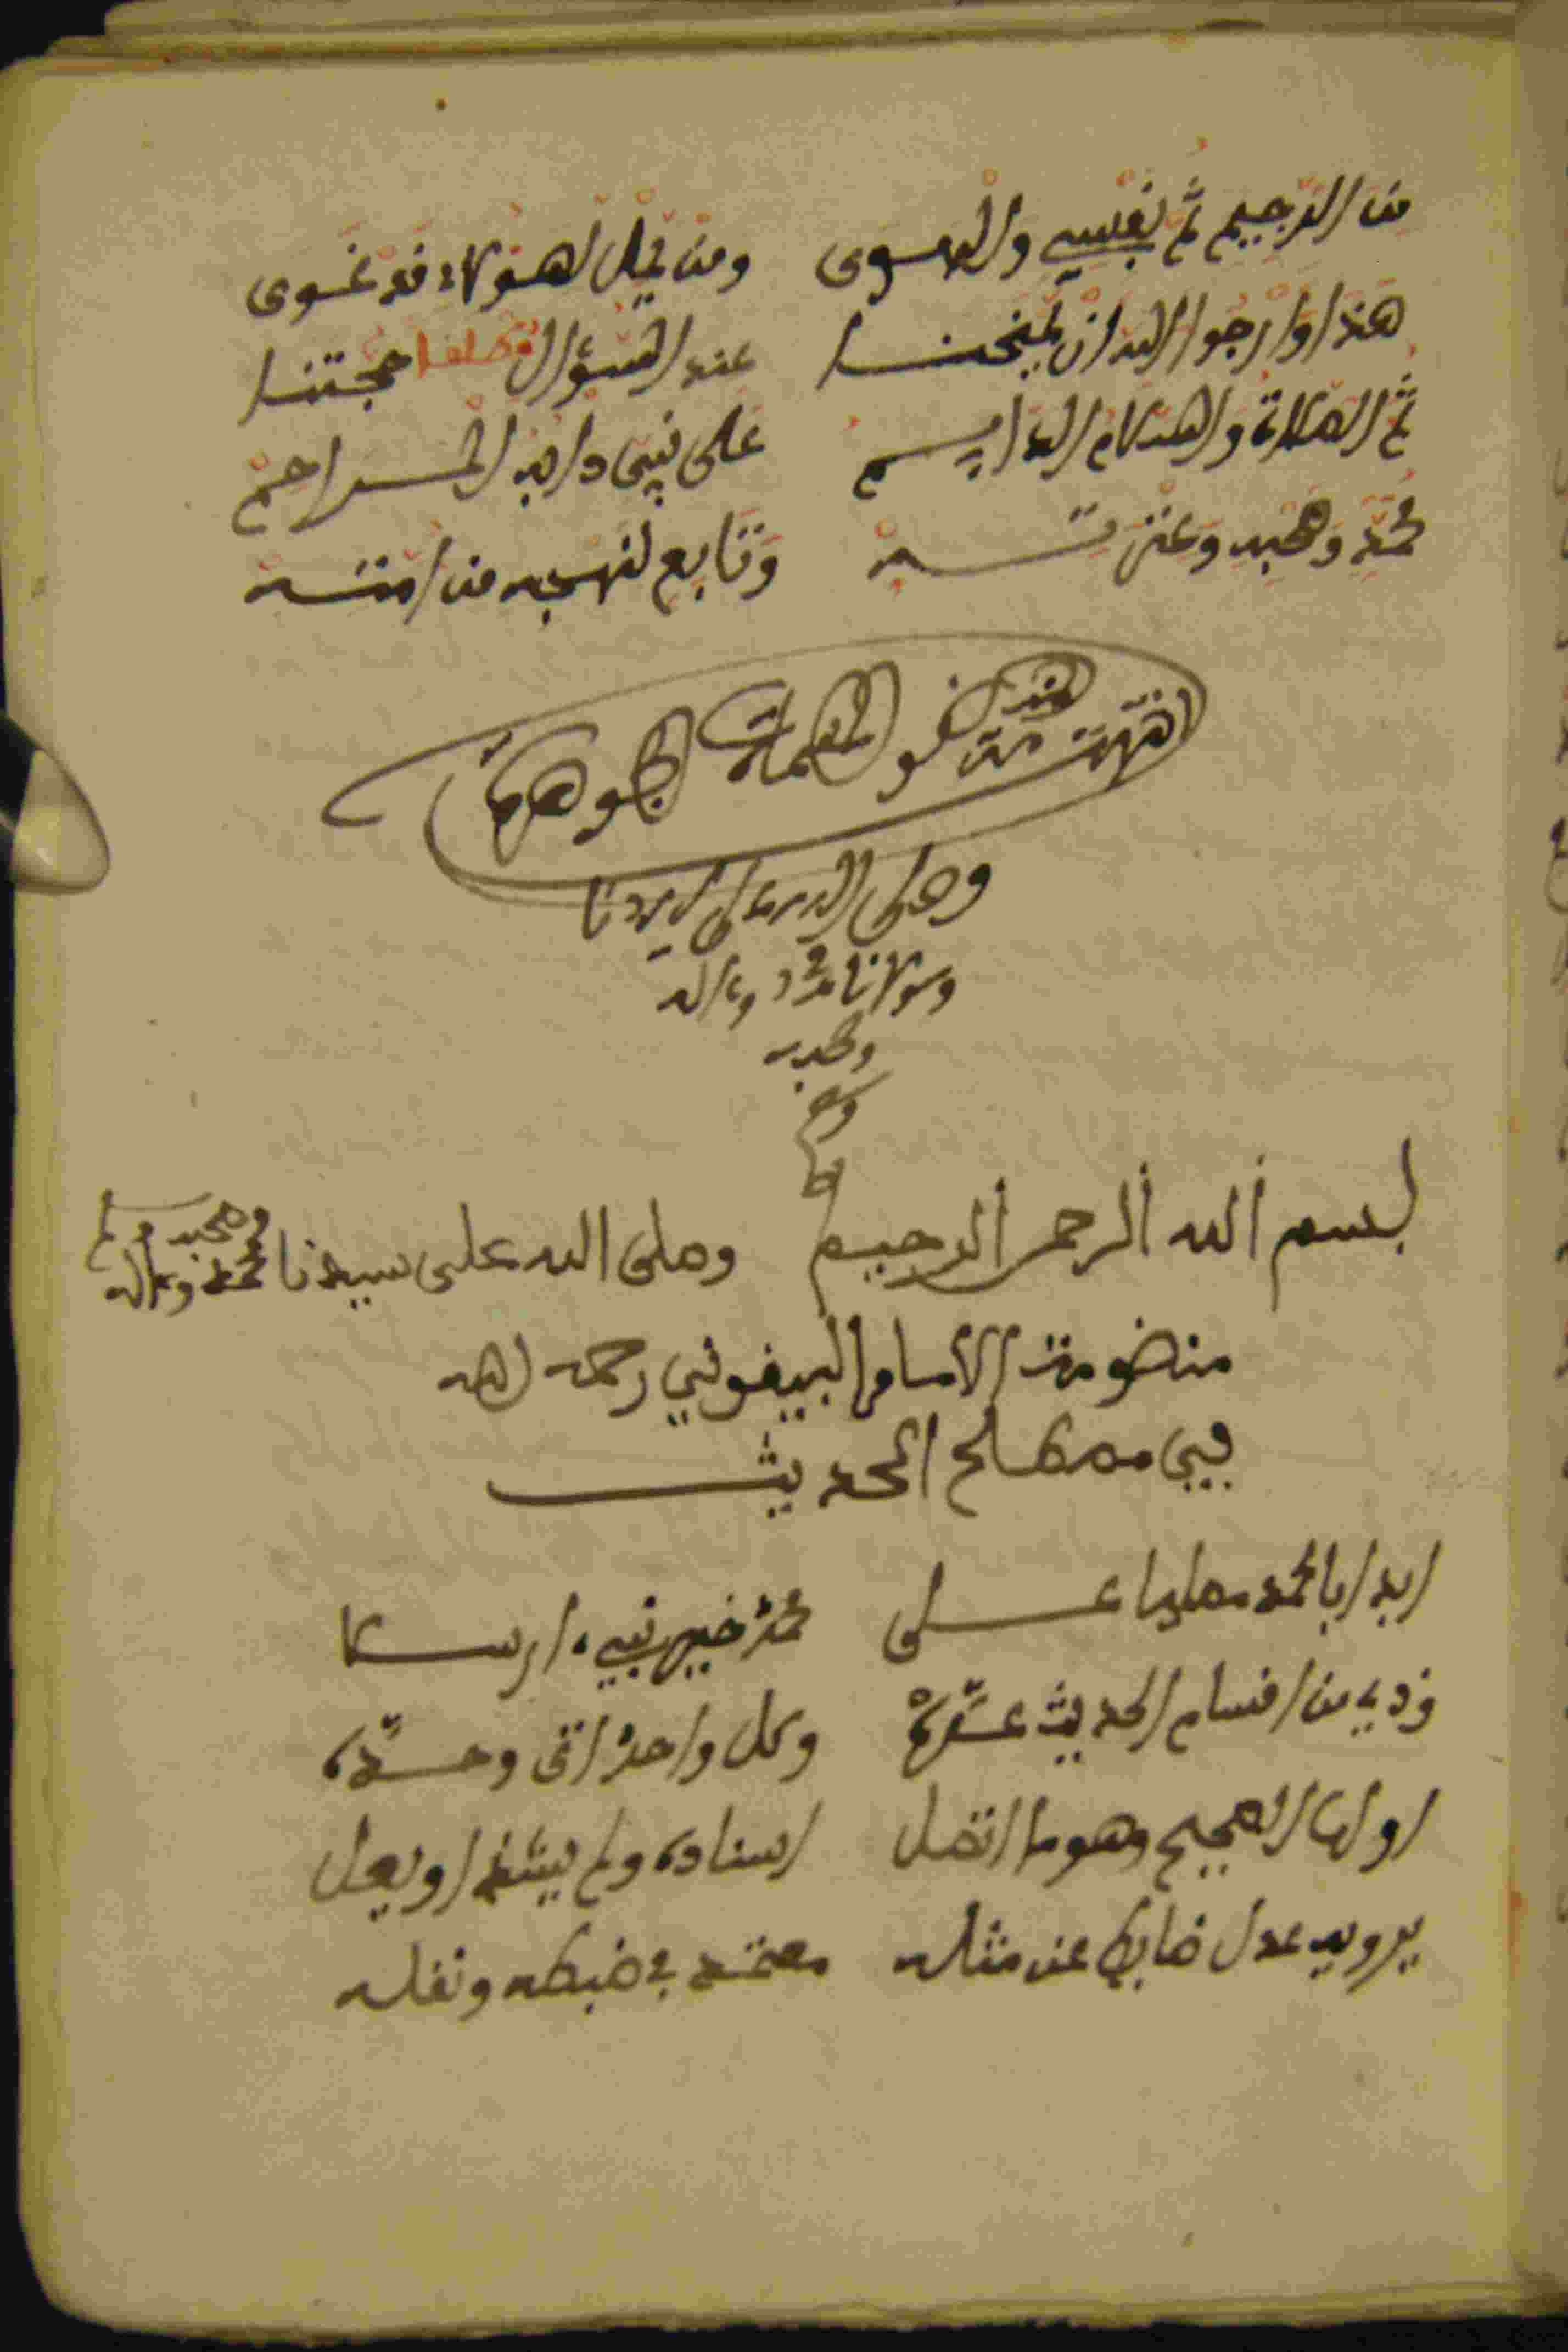 من الرجيم ثم نفسي والهوى ومن يمل لهولاء قد غوى
هذا وارجوا الله ان يمنحنا عند السؤال مطلقا حجتنا
ثم الصلاة والسلام الدايم على نبي دابه المراحم
محمد وصحبه وعترته وتابع لنهجه من امته
انتهت منضومة الجوهرة
وصلى الله على سيدنا
ومولانا محمد وءاله
وصحبه
بسم الله الرحمن الرحيم وصلى الله على سيدنا محمد وءاله وصحبه وسلم
منضومة الامام البيقوني رحمه الله
في مصطلح الحديث
ابدا بالحمد مصليا على محمد خير نبيء ارسلا
وذي من اقسام الحديث عدة وكل واحد اتى وحده
اولها الصحيح وهو ما اتصل اسناده ولم يشذ او يعل
يرويه عدل ضابط عن مثله معتمد في ضبطه ونقله